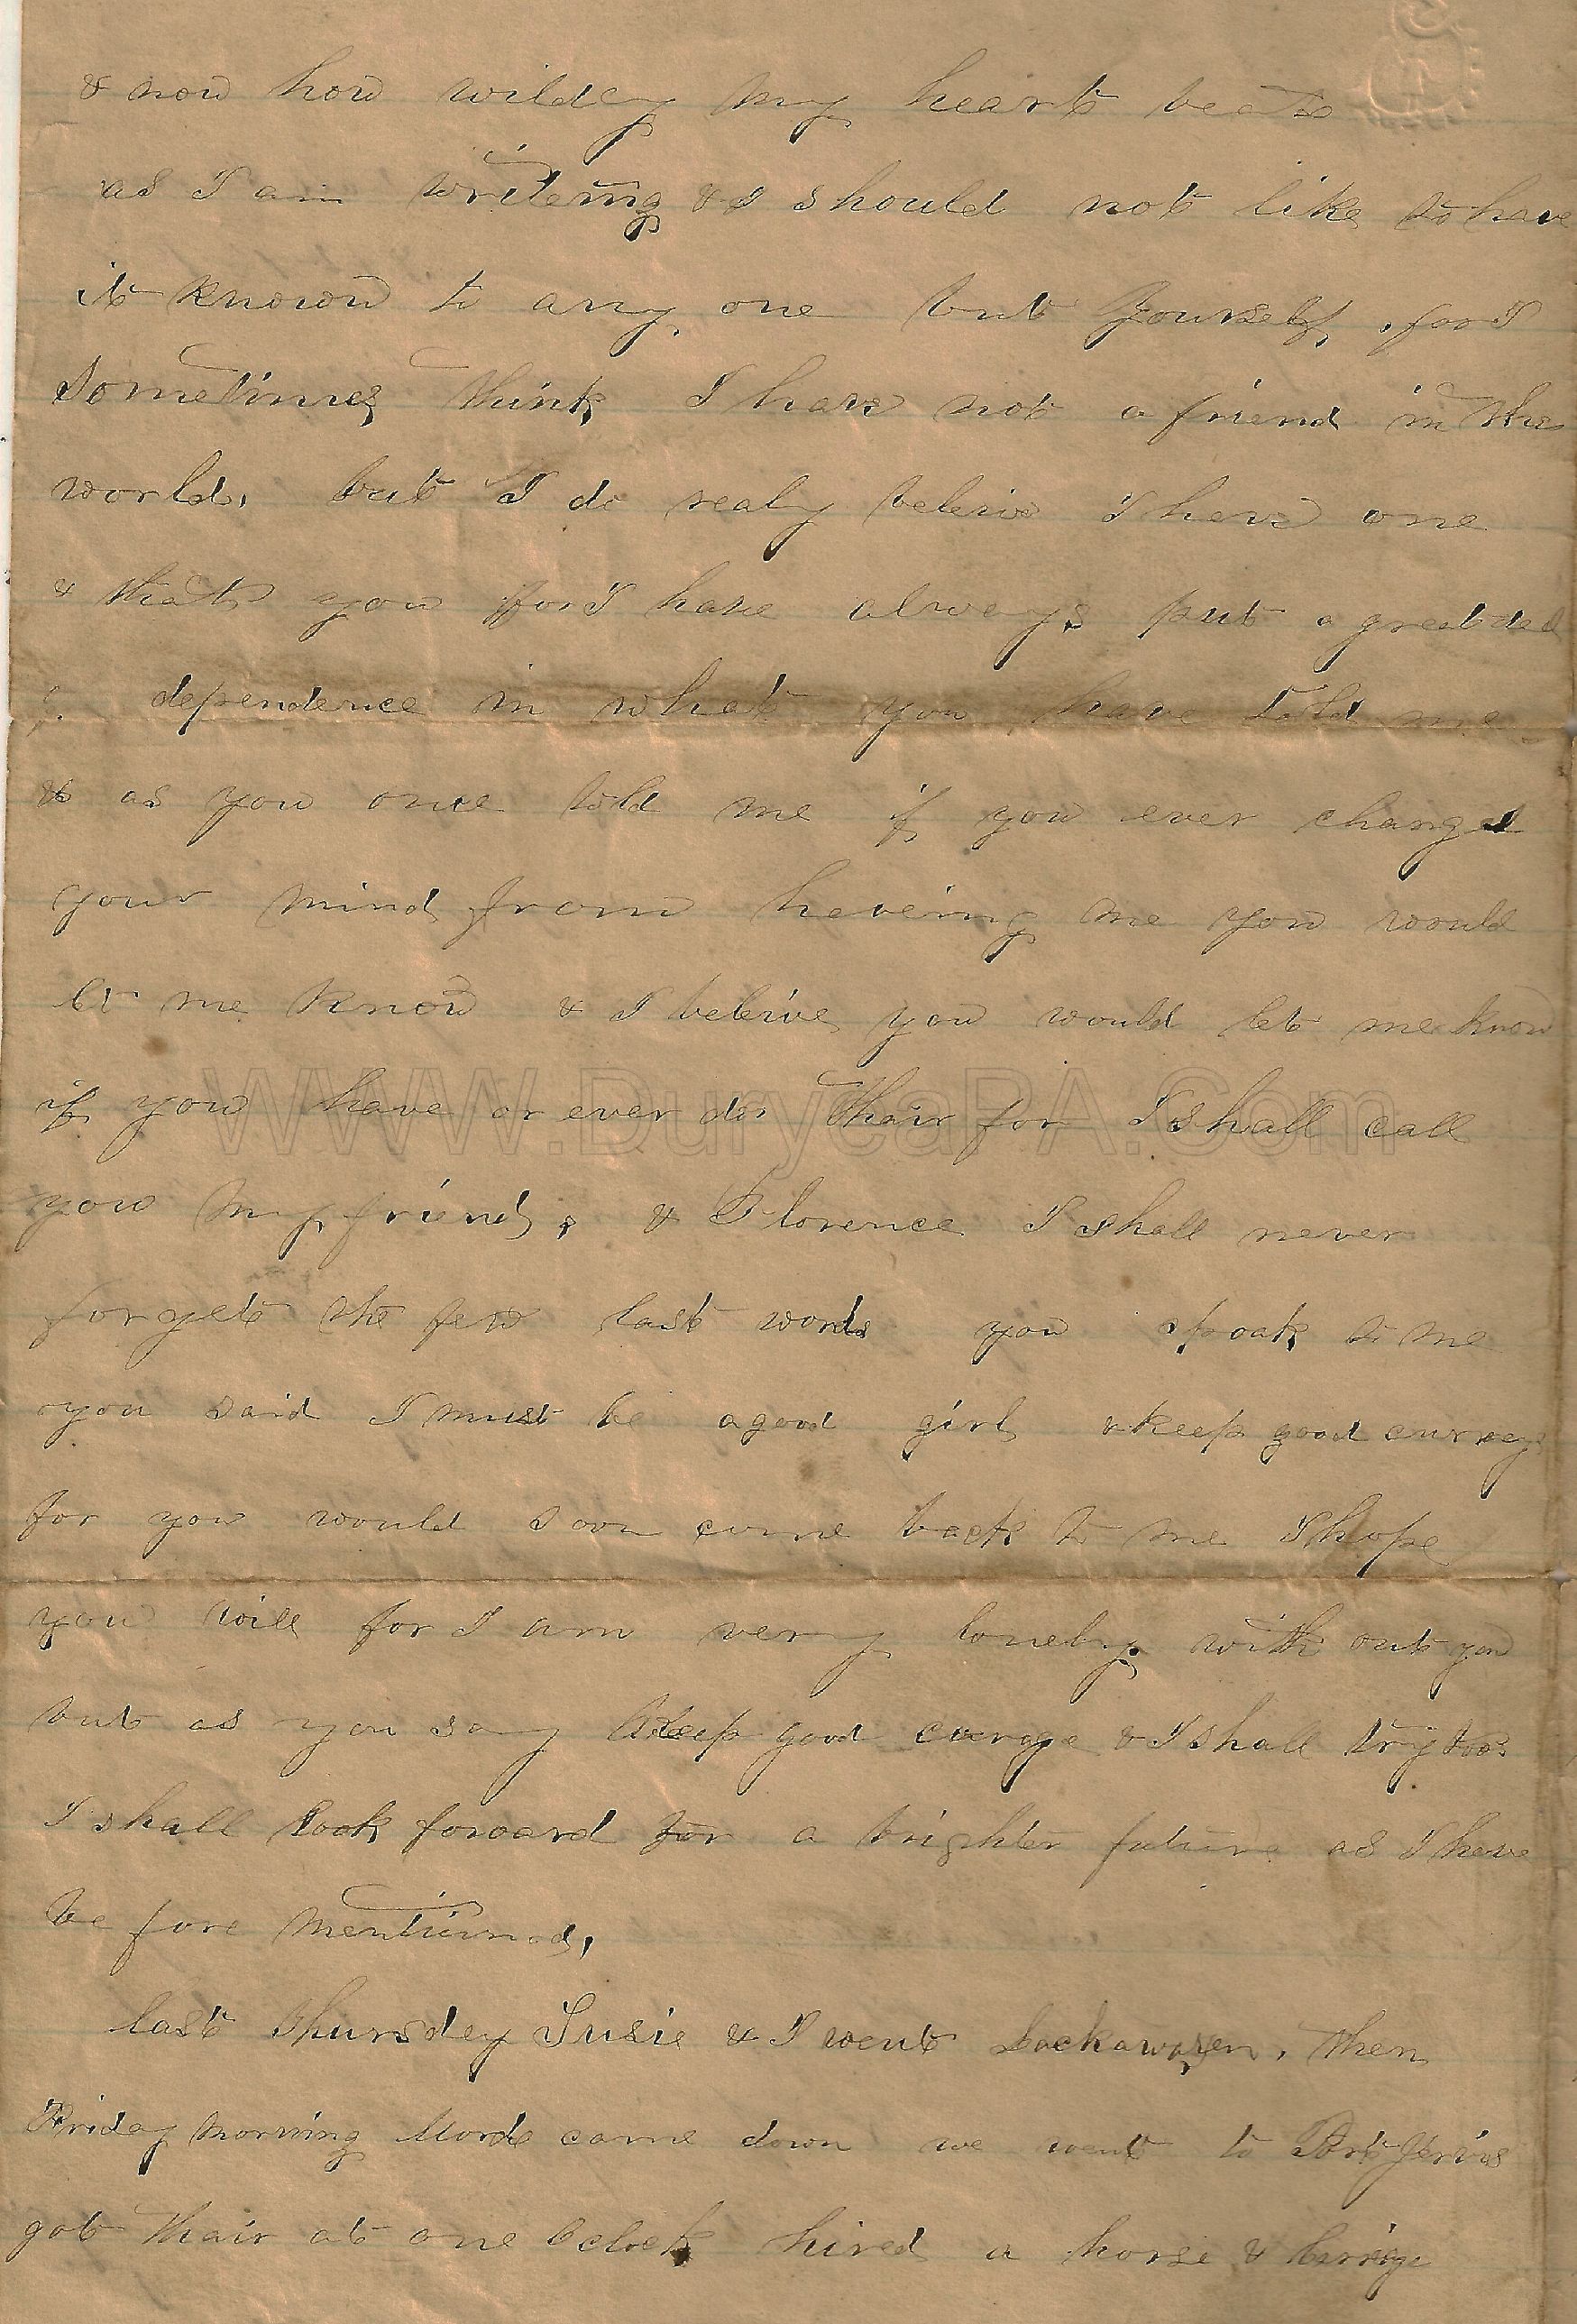 & now how wildly my heart beats
as I am writeing & I should not like to have
it known to any one but yourself, for I
sometimes think I have not a friend in the
world, but I do realy beleive I have one
& thats you for I have always put a great deal
of dependence in what you have told me
& as you once told me if you ever changed
your mind from haveing me you would
let me know & I beleive you would let me know
if you have or ever do, thair for I shall call
WWW.DuryeaPA.Com
you my friend, & Florence I shall never
forget the few last words you spoak to me
you said I must be a good girl & keep good
for you would soon come back to me I hope
you will for I am very lonely with out you
but as you say keep good currage & I shall try to
I shall look forward for a brighter future as I have
be fore mentioned,
last thursday Susie & I went Lackawaxen, then
Friday morning came down we went to Port Jervis
got thair at one oclock hired a horse &